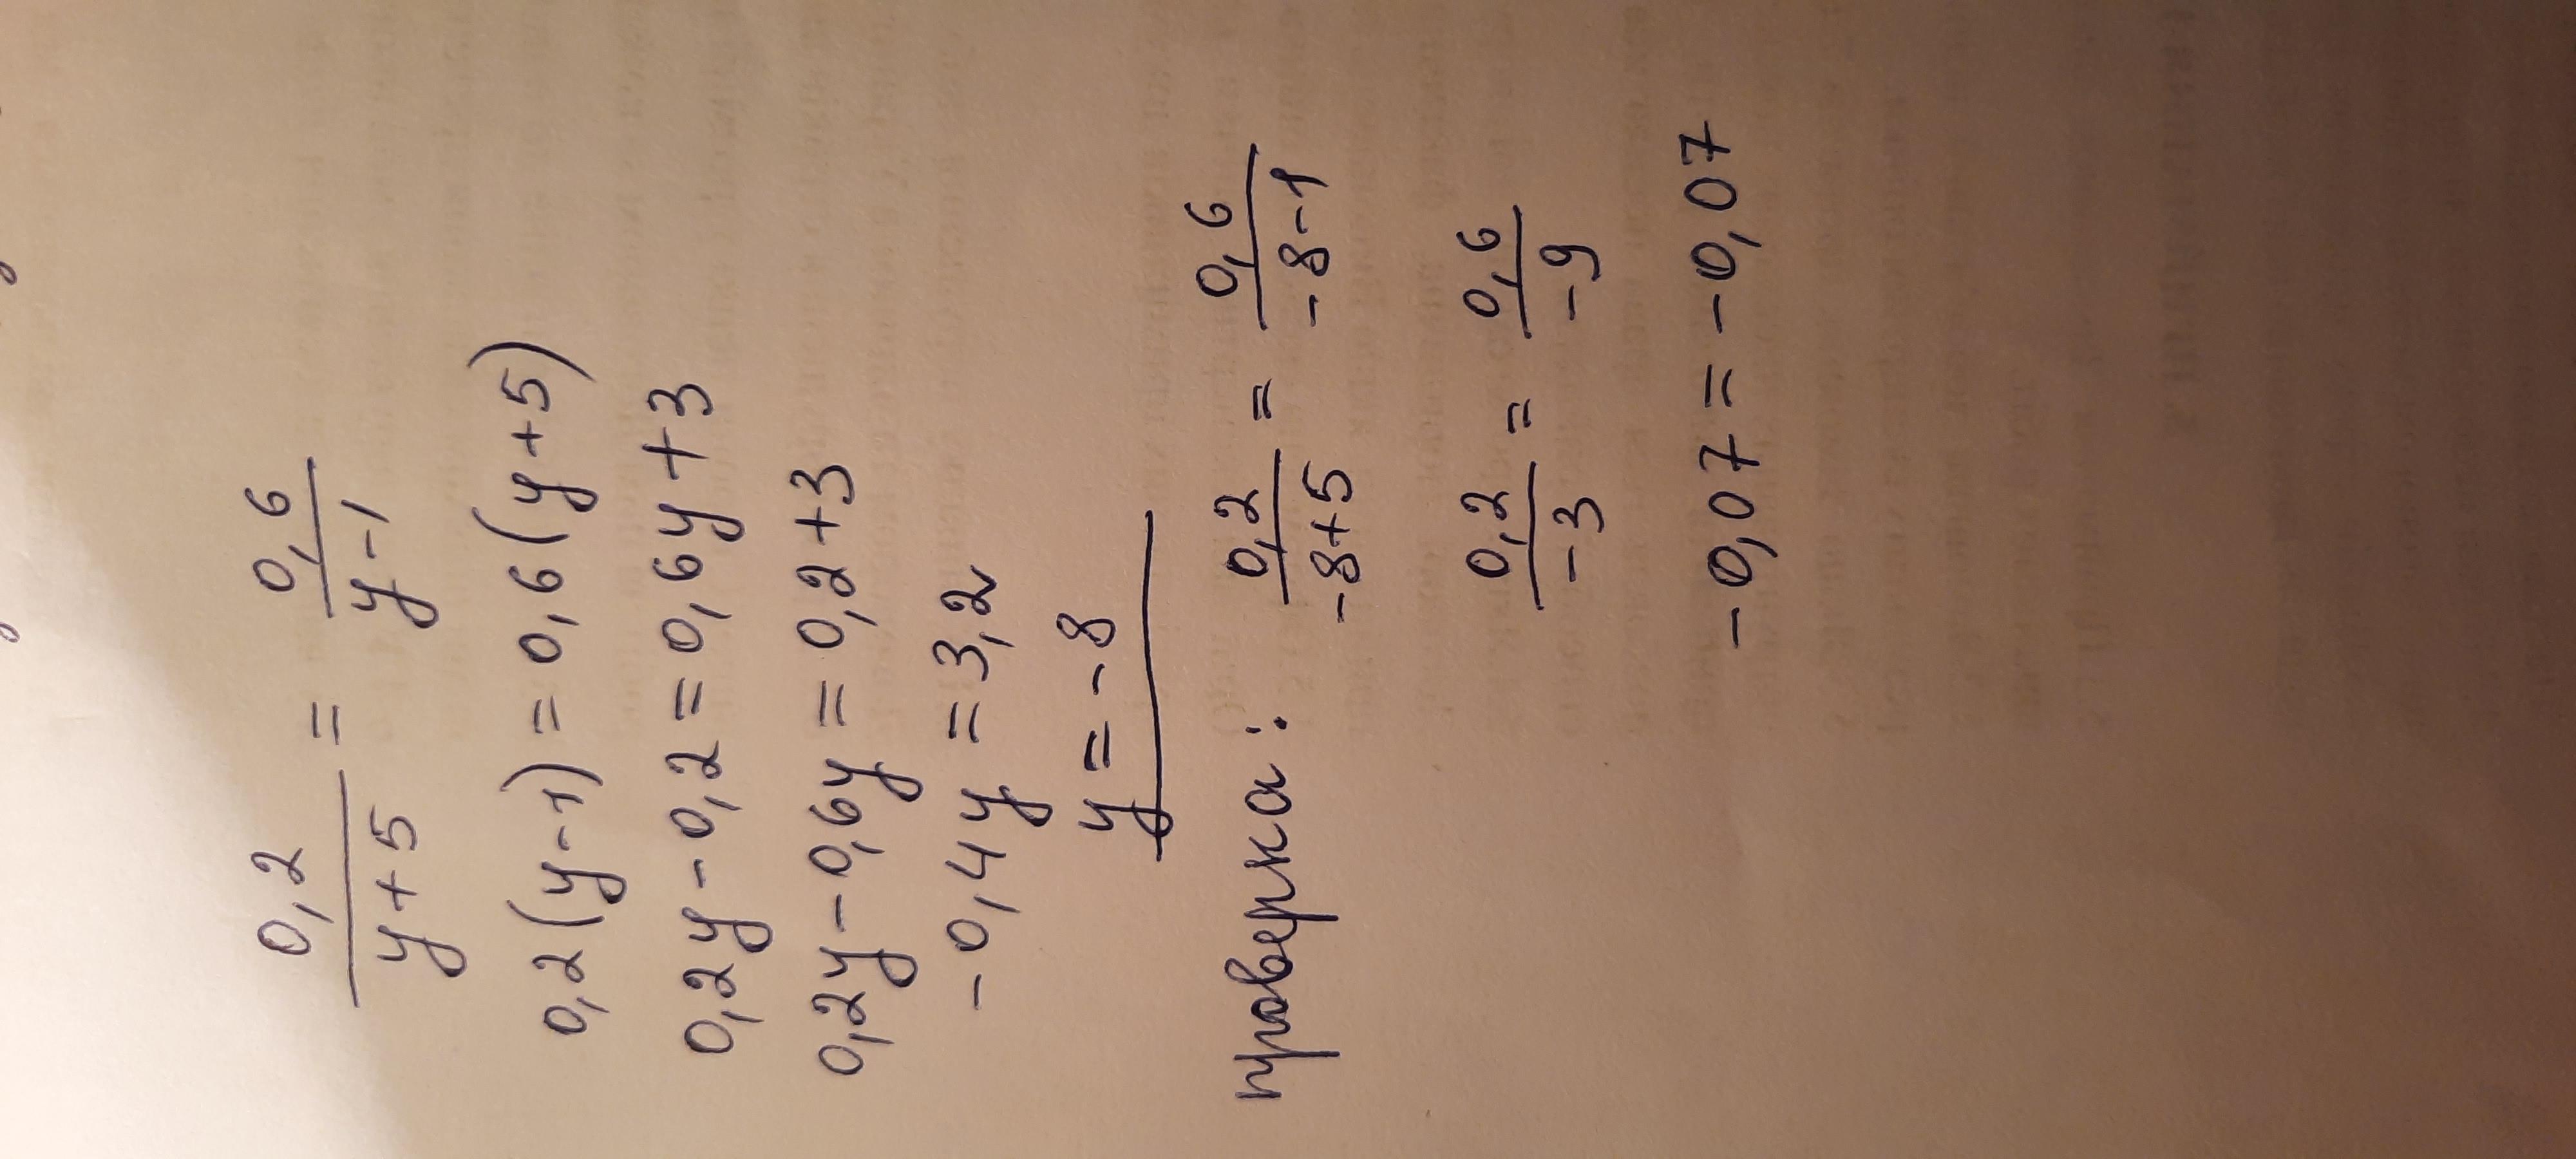 0,2/(y+5) = 0,6/(y-1)
0,2(y-1) = 0,6(y+5)
0,2y-0,2 = 0,6y+3
0,2y-0,6y = 0,2+3
-0,4y = 3,2
y = -8
проверка: 0,2/(-8+5) = 0,6/(-8-1)
0,2/(-3) = 0,6/(-9)
-0,07 = -0,07